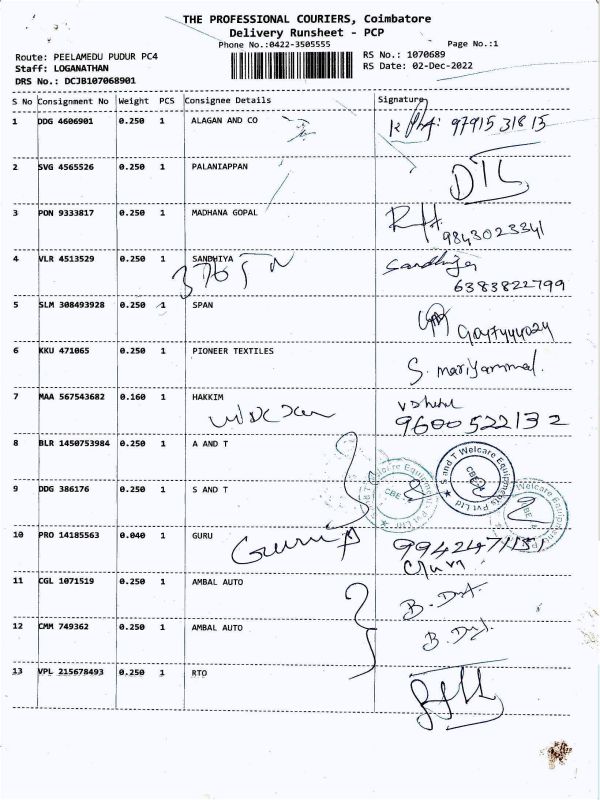 THE PROFESSIONAL COURIERS, Coimbatore
Delivery Runsheet - PCP
Phone No.:0422-3505555 Page No.:1
Route: PEELAMEDU PUDUR PC4 RS No.: 1070689
Staff: LOGANATHAN RS Date: 02-Dec-2022
DRS No.: DCJB107068901
S No Consignment No Weight PCS Consignee Details Signature
1 DDG 4606901 0.250 1 ALAGAN AND CO 97915 31815
2 SVG 4565526 0.250 1 PALANIAPPAN
3 PON 9333817 0.250 1 MADHANA GOPAL
9843023341
4 VLR 4513529 0.250 1 SANDHIYA Sandhiya
6383822799
5 SLM 308493928 0.250 1 SPAN
9047444024
6 KKU 471065 0.250 1 PIONEER TEXTILES S. mariyammal.
7 MAA 567543682 0.160 1 HAKKIM
9600522132
8 BLR 1450753984 0.250 1 A AND T
S and T Welcare Equipments Pvt Ltd
CBE
9 DDG 386176 0.250 1 S AND T
10 PRO 14185563 0.040 1 GURU
11 CGL 1071519 0.250 1 AMBAL AUTO
12 CMM 749362 0.250 1 AMBAL AUTO
13 VPL 215678493 0.250 1 RTO